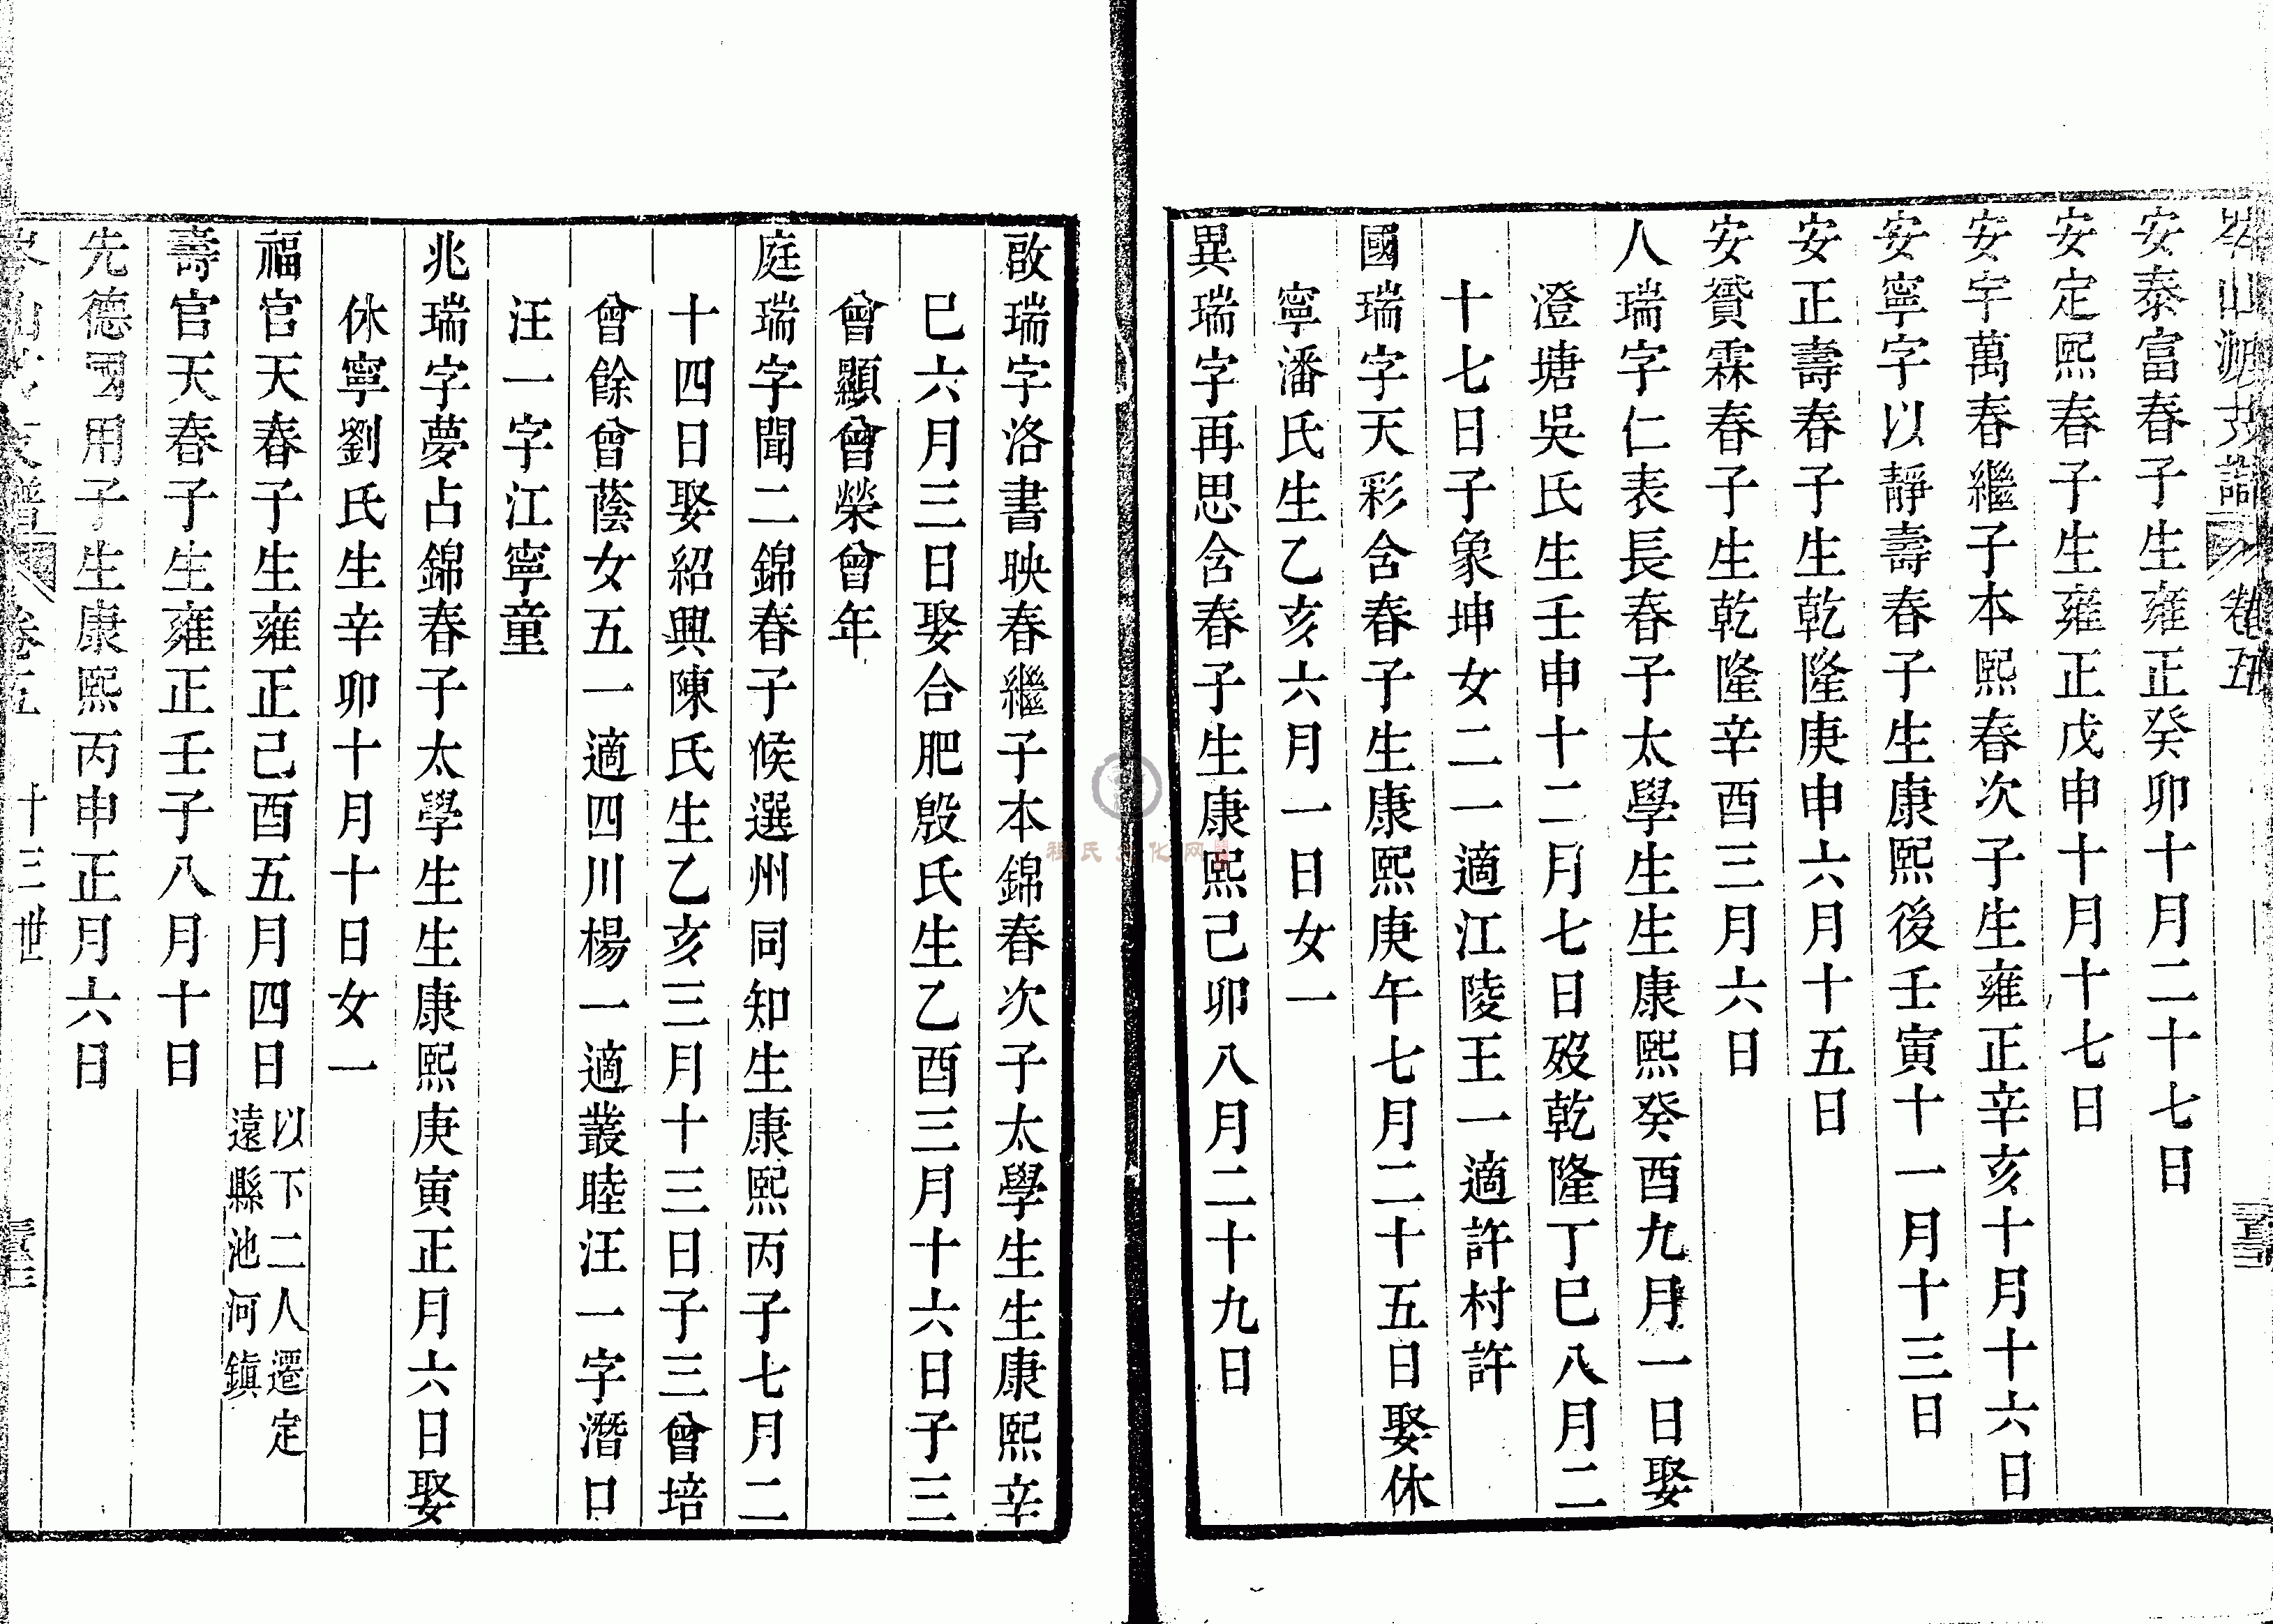 岑山渡支譜 卷五
安泰富春子生雍正癸卯十月二十七日
安定熙春子生雍正戊申十月十七日
安宇萬春繼子本熙春次子生雍正辛亥十月十六日
安寧字以靜壽春子生康熙後壬寅十一月十三日
安正壽春子生乾隆庚申六月十五日
安贇霖春子生乾隆辛酉三月六日
人瑞字仁表長春子太學生生康熙癸酉九月一日娶
澄塘吳氏生壬申十二月七日歿乾隆丁巳八月二
十七日子象坤女二一適江陵王一適許村許
國瑞字天彩含春子生康熙庚午七月二十五日娶休
寧潘氏生乙亥六月一日女一
異瑞字再思含春子生康熙己卯八月二十九日
啟瑞字洛書映春繼子本錦春次子太學生生康熙辛
巳六月三日娶合肥殷氏生乙酉三月十六日子三
曾顯曾榮曾年
庭瑞字聞二錦春子候選州同知生康熙丙子七月二
十四日娶紹興陳氏生乙亥三月十三日子三曾培
曾餘曾蔭女五一適四川楊一適叢睦汪一字潛口
汪一字江寧童
兆瑞字夢占錦春子太學生生康熙庚寅正月六日娶
休寧劉氏生辛卯十月十日女一
福官天春子生雍正己酉五月四日 以下二人遷定
遠縣池河鎮
壽官天春子生雍正壬子八月十日
先德國用子生康熙丙申正月六日
卷五 十三世
程氏文化网